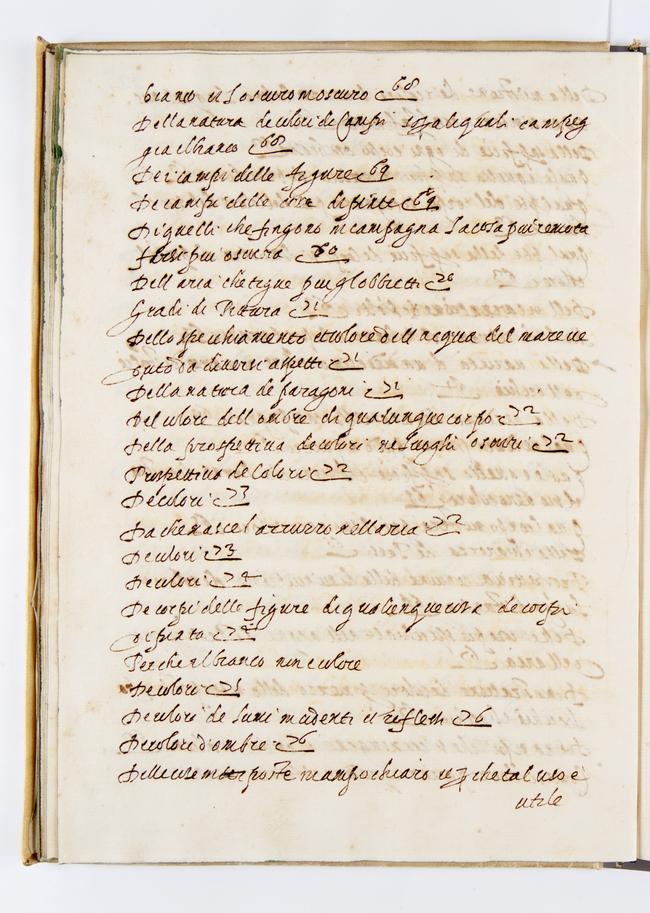 biano et l oscuro in oscuro 68
Della natura de colori de Campi sopra li quali campeg
gia el bianco 68
De i campi delle figure 69
De campi delle cose dipinte 69
Di quelli che fingono in campagna la cosa piu remota
farsi piu oscura 60
Dell aria che tigne piu gl obbietti 20
Gradi di Pitura 21
Dello specchiamento et colore dell acqua del mare ve
duto da diversi aspetti 21
Della natura de paragoni 21
Del colore dell ombre di qualunque corpo 22
Della prospettiva de colori ne luoghi oscuri 22
Prospettiva de Colori 22
De colori 23
Da che nasce l azzurro nell aria 22
De colori 23
De colori 24
De corpi delle figure
dipinto 24
Perche el bianco non e colore
De colori 25
De colori de lumi incidenti et reflessi 26
De colori d ombre 26
Delle cose poste in campo chiaro et perche tal uso e
utile